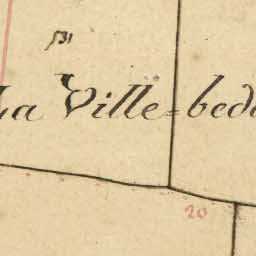 531
La Ville=bede
20